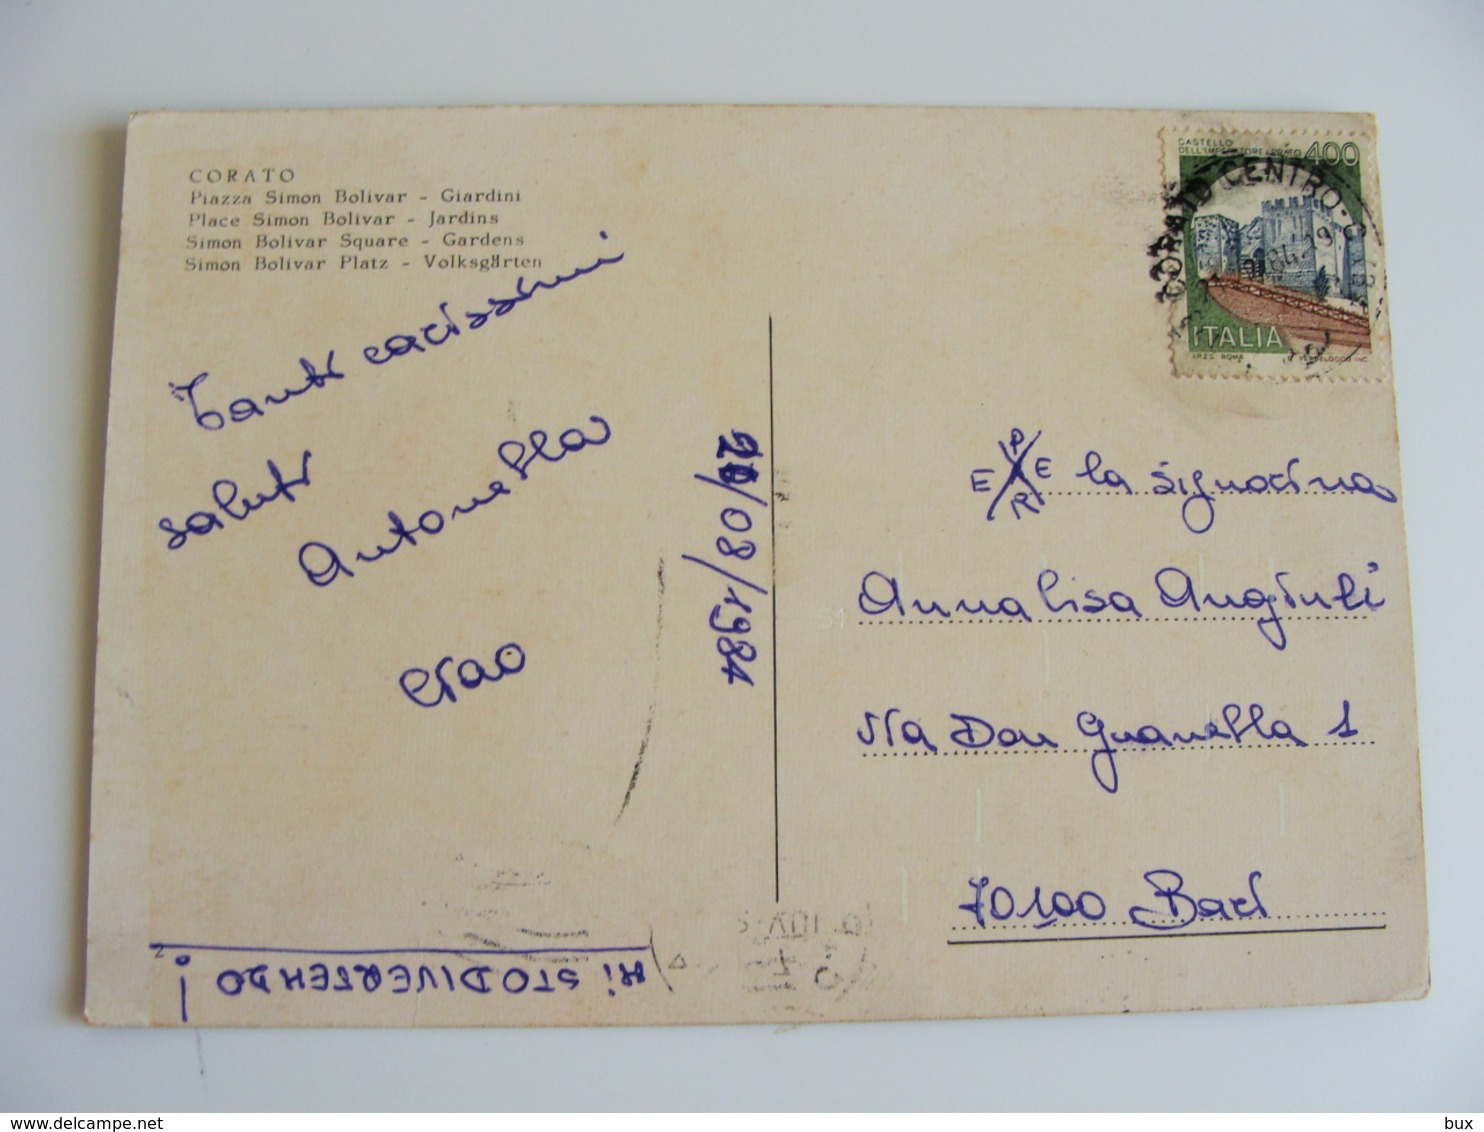 CORATO
Piazza Simon Bolivar - Giardini
Place Simon Bolivar - Jardins
Simon Bolivar Square - Gardens
Simon Bolivar Platz - Volksgärten
Tanti carissimi
saluti
Antonella
ciao
Mi STO DIVERTENDO!
2
/08/1984
CASTELLO
DELL'IMPERATORE • PRATO 400
CORATO CENTRO
ITALIA
I.P.Z.S. ROMA
E P R E la signorina
Annalisa Angiuli
51
Via Don Guanella 1
70100 Bari
bux